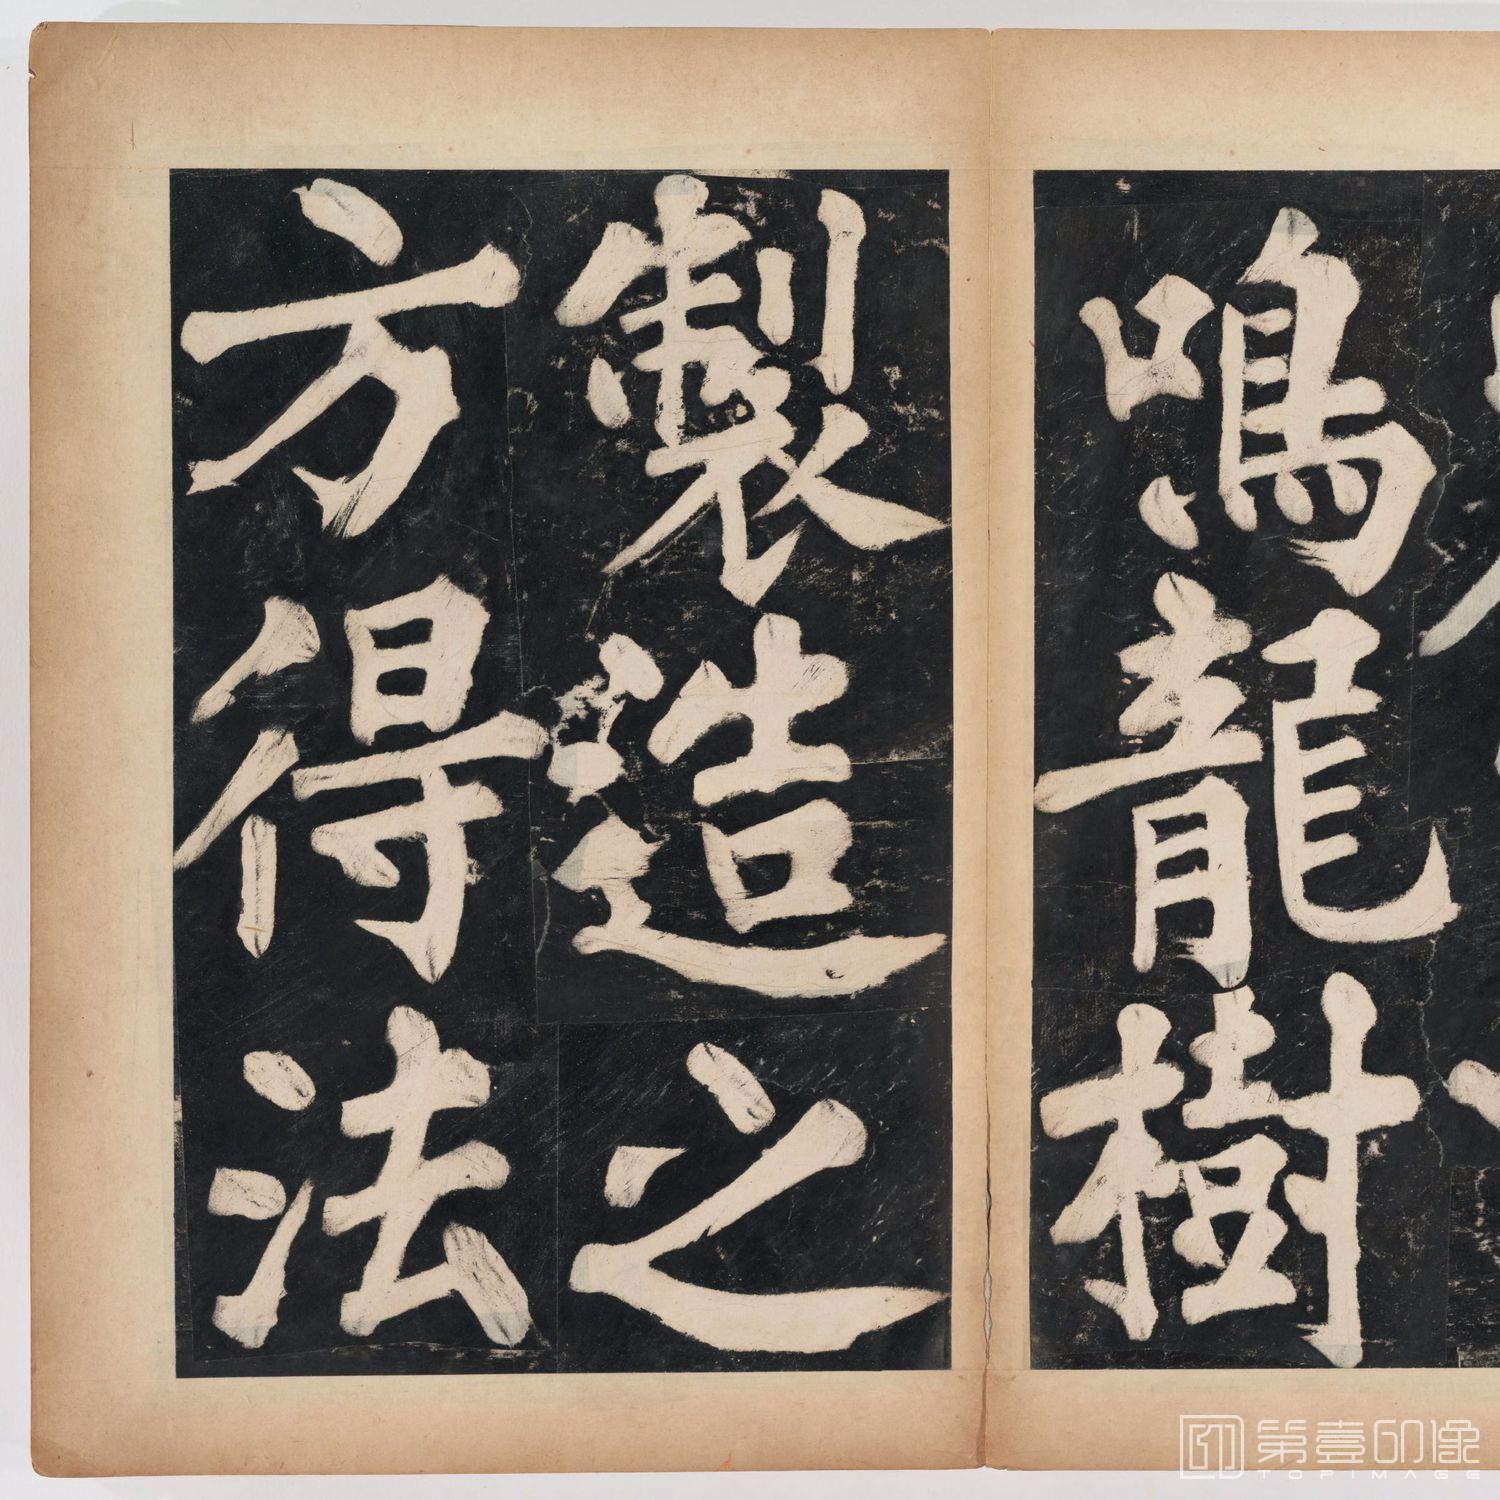 鳴龍樹
製造之
方得法
第壹印像
TOPIMAGE